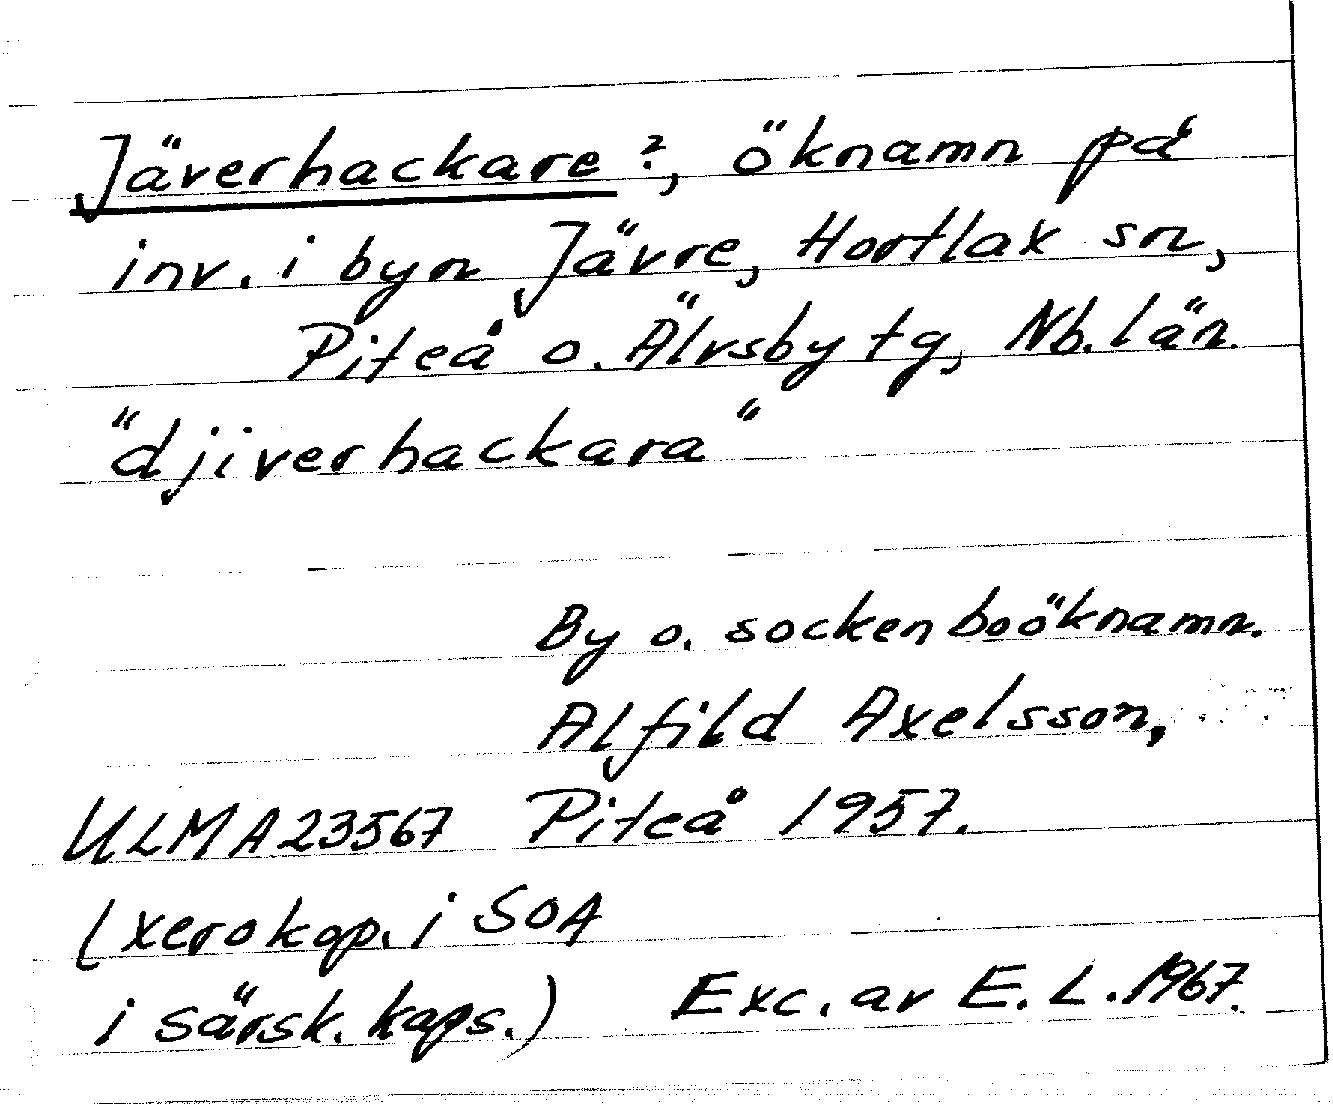 Jäverhackare?, öknamn på
inv. i byn Jävre, Hortlax sn,
Piteå o. Älvsby tg, Nb. län.
"djiverhackara"
By o. sockenboöknamn.
Alfild Axelsson,
ULMA 23567 Piteå 1957.
(xerokop. i SOA
i särsk. kaps.) Exc. av E. L. 1967.